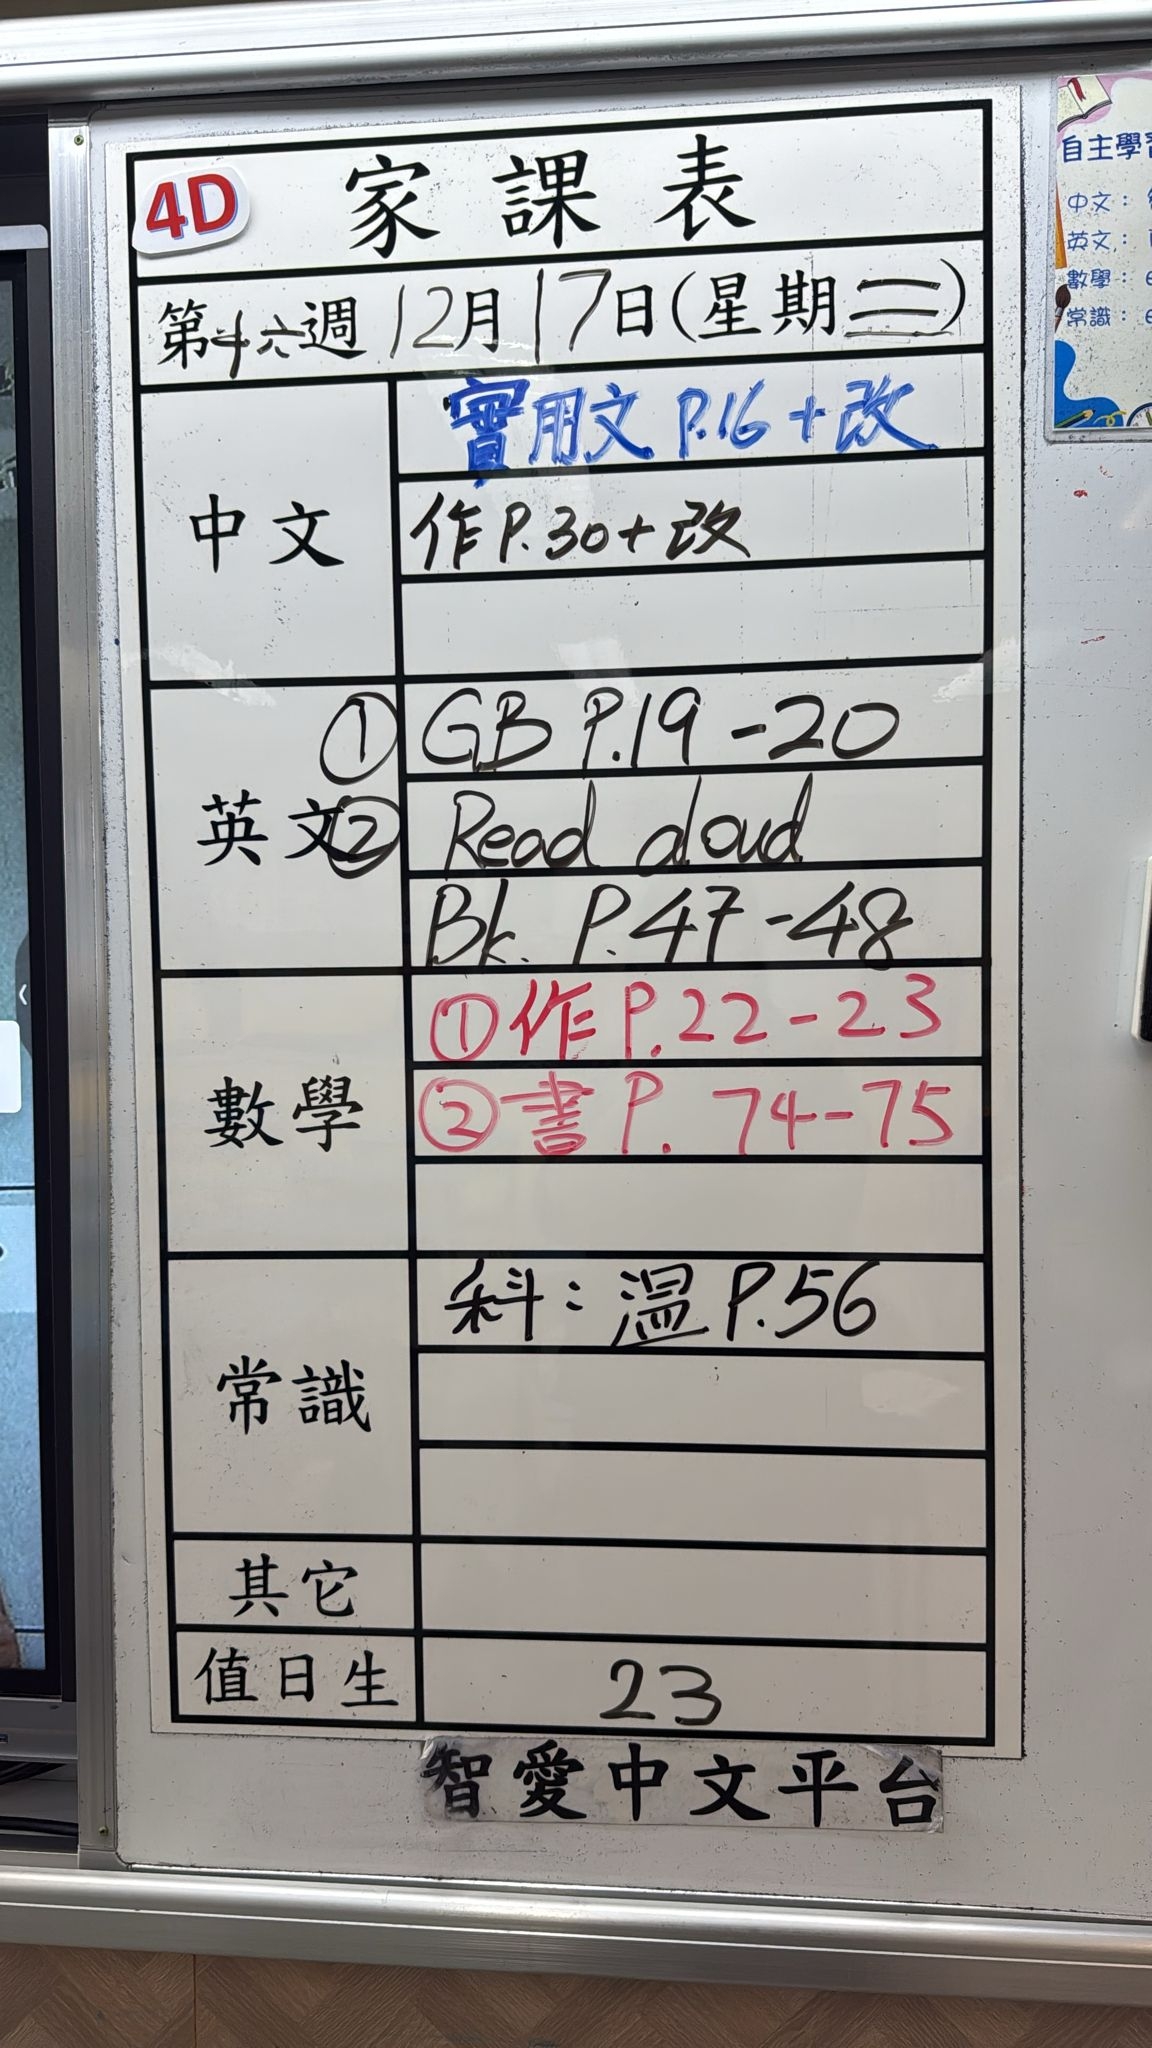 4D 家課表
第十六週 12月17日(星期三)
中文
實用文 P.16 + 改
作 P.30 + 改
英文
① GB P.19 - 20
② Read aloud
Bk. P.47 - 48
數學
① 作 P.22 - 23
② 書 P. 74 - 75
常識
科：溫 P.56
其它
值日生 23
智愛中文平台
自主學習
中文：
英文：
數學：
常識：